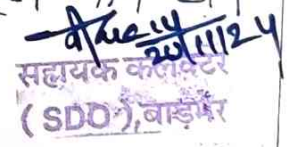 20/11/24
सहायक कलक्टर
(SDO), बाड़मेर